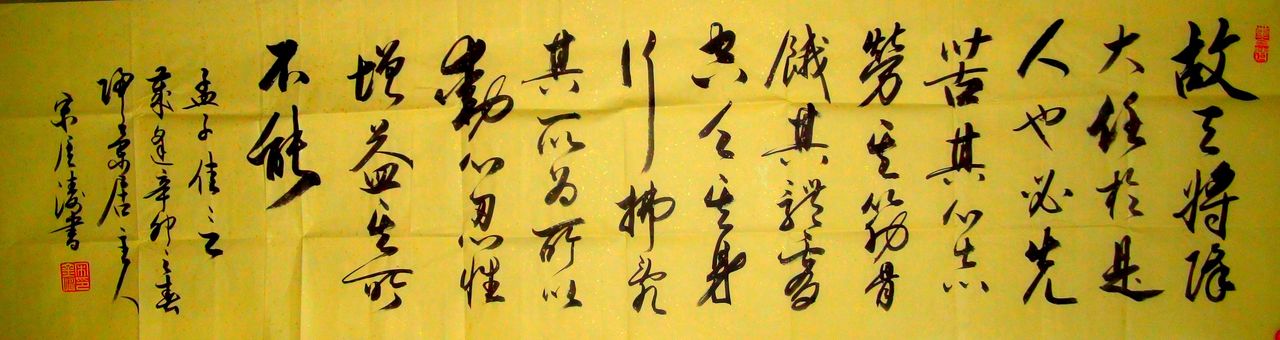 故天將降
大任於是
人也必先
苦其心志
勞其筋骨
餓其體膚
空乏其身
行拂乱
其所为所以
動心忍性
增益其所
不能
孟子佳言
歲逢辛卯之春
居主人
宋書